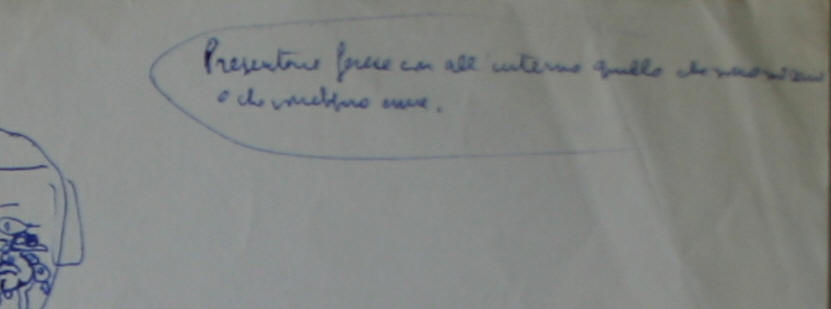 Presentare forse con all interno quello che
o che vorrebbero